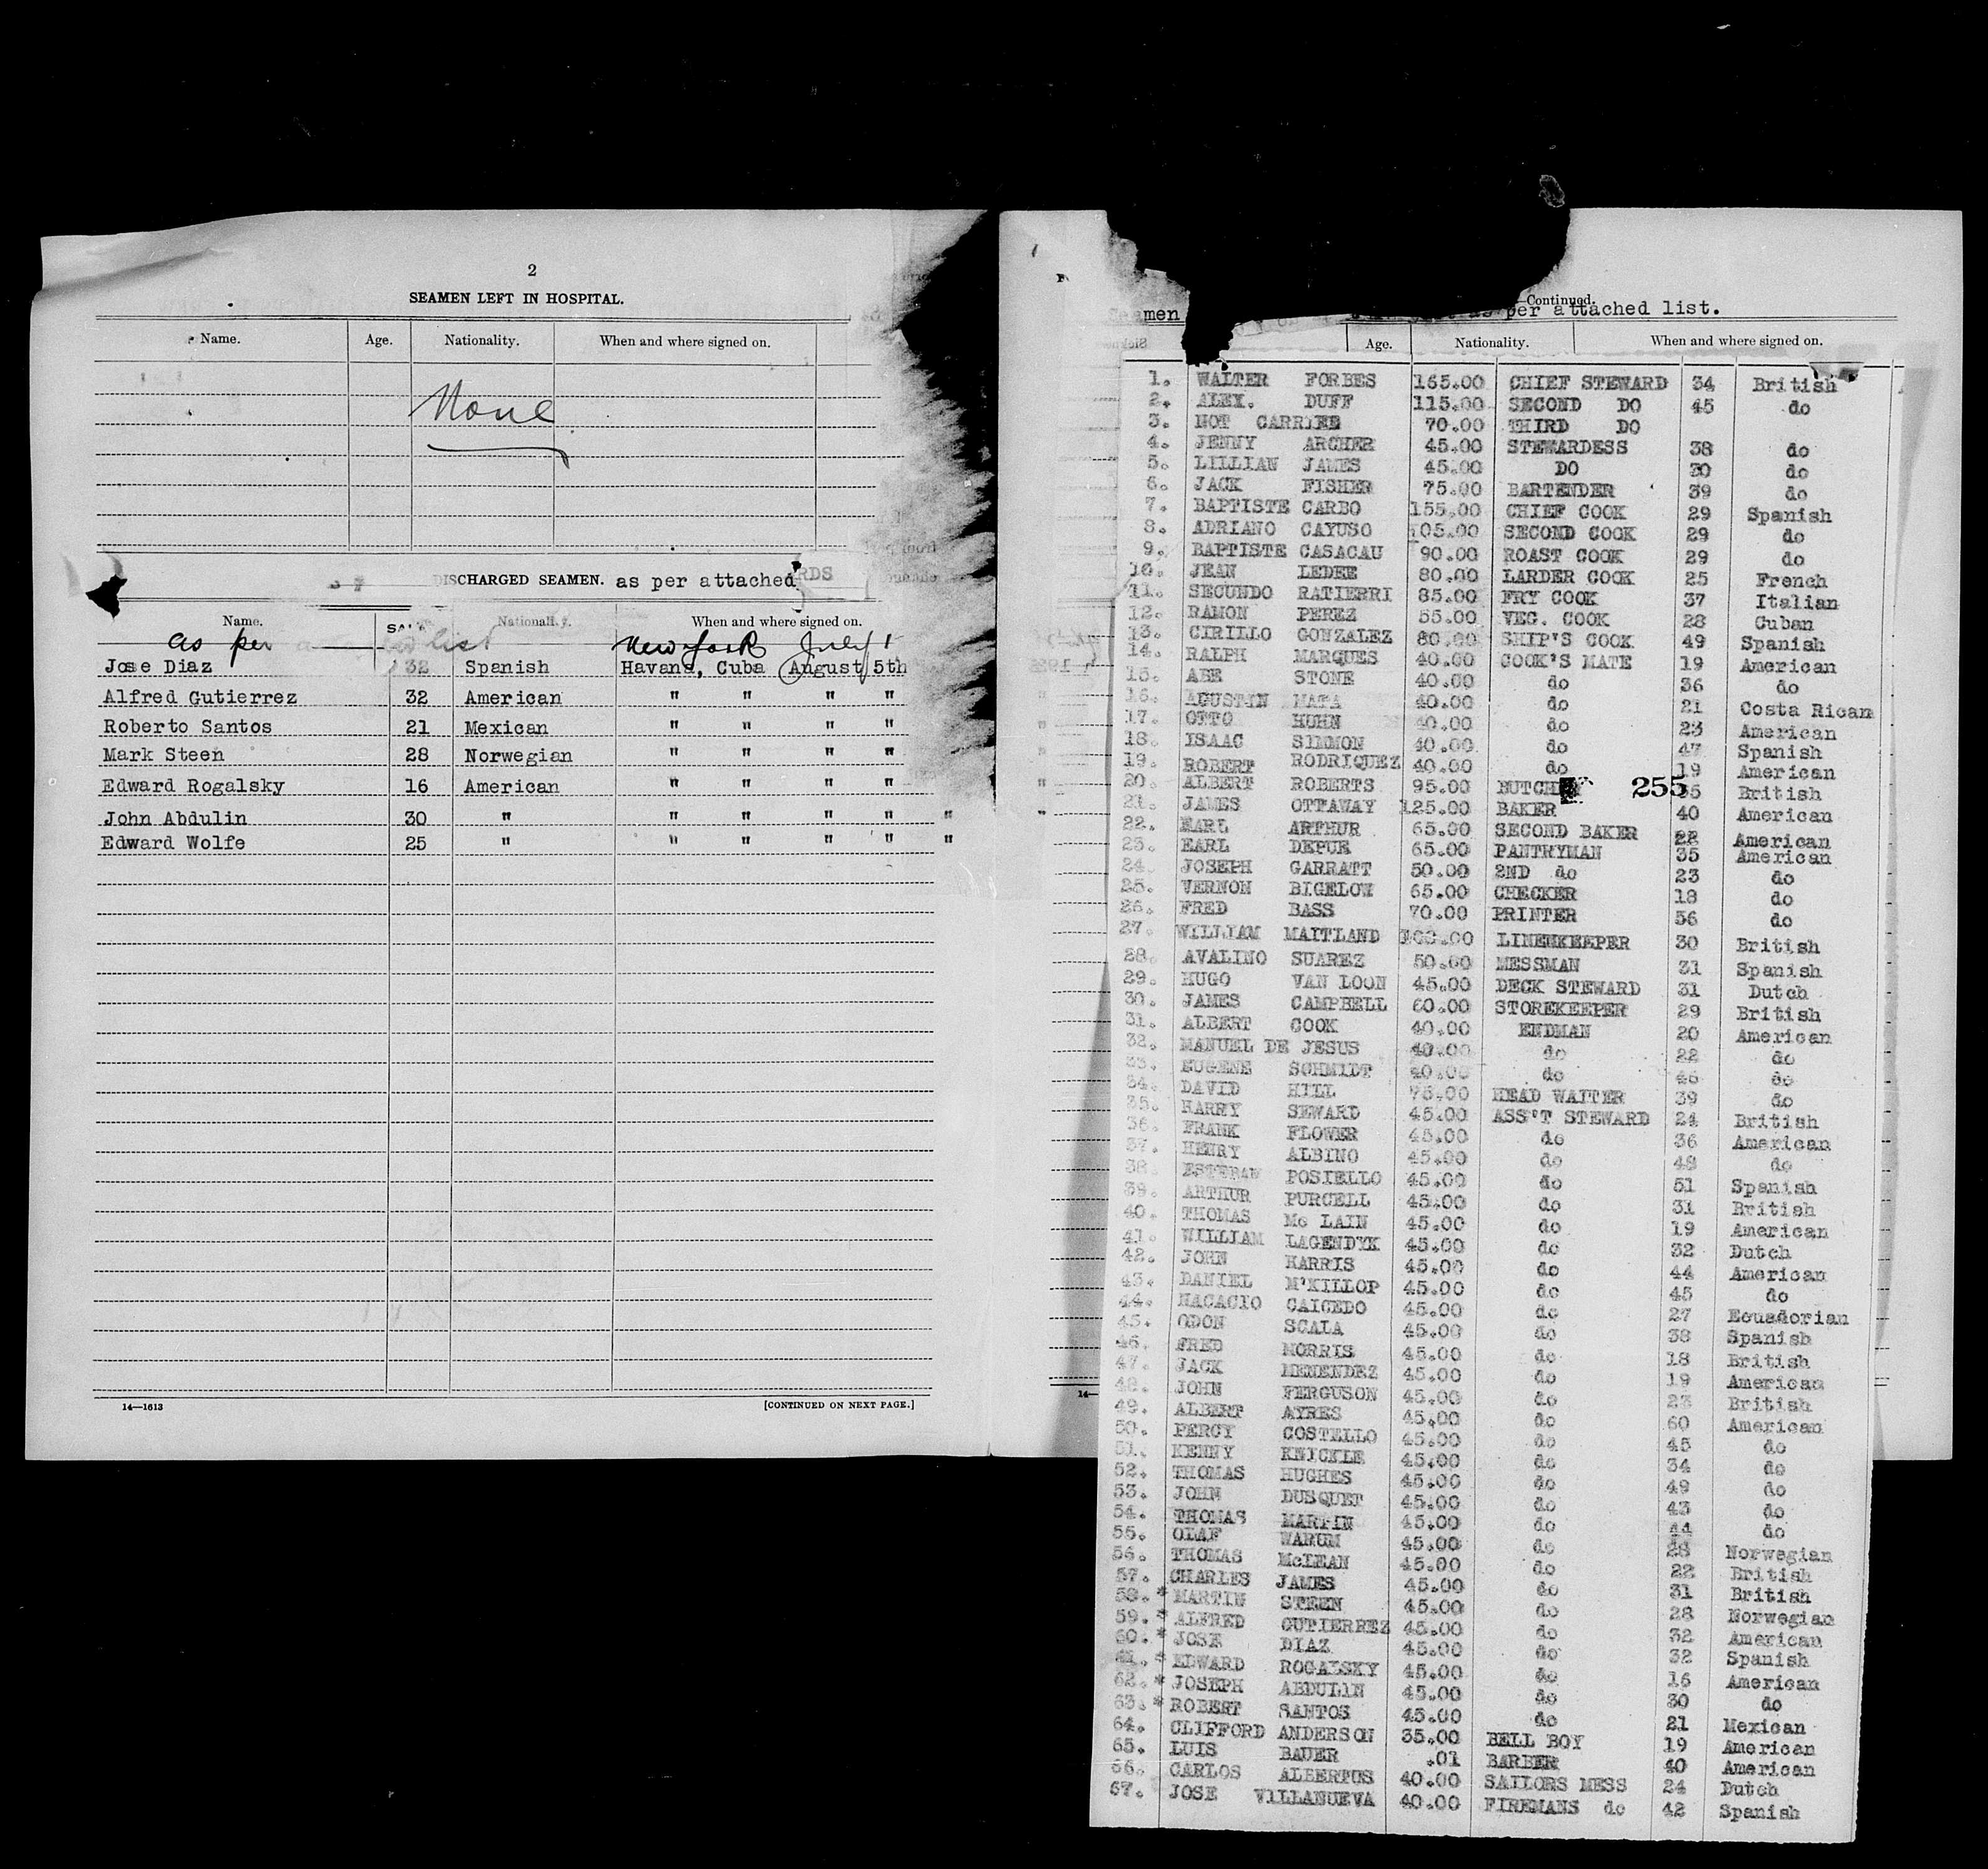 2
SEAMEN LEFT IN HOSPITAL.
Name. Age. Nationality. When and where signed on.
None
DISCHARGED SEAMEN. as per attached
RDS
Name. Nationality. When and where signed on.
as per list New York July 1
Jose Diaz 32 Spanish Havana, Cuba August 5th
Alfred Gutierrez 32 American " " " "
Roberto Santos 21 Mexican " " " "
Mark Steen 28 Norwegian " " " "
Edward Rogalsky 16 American " " " "
John Abdulin 30 " " " " " "
Edward Wolfe 25 " " " " " "
14—1613 [CONTINUED ON NEXT PAGE.]
—Continued.
Seamen per attached list.
Age. Nationality. When and where signed on.
1. WALTER FORBES 165.00 CHIEF STEWARD 34 British
2. ALEX. DUFF 115.00 SECOND DO 45 do
3. NOT CARRIED 70.00 THIRD DO
4. JENNY ARCHER 45.00 STEWARDESS 38 do
5. LILLIAN JAMES 45.00 DO 30 do
6. JACK FISHER 75.00 BARTENDER 39 do
7. BAPTISTE CARBO 155.00 CHIEF COOK 29 Spanish
8. ADRIANO CAYUSO 105.00 SECOND COOK 29 do
9. BAPTISTE CASACAU 90.00 ROAST COOK 29 do
10. JEAN LEDEE 80.00 LARDER COOK 25 French
11. SECUNDO RATIERRI 85.00 FRY COOK 37 Italian
12. RAMON PEREZ 55.00 VEG. COOK 28 Cuban
13. CIRILLO GONZALEZ 80.00 SHIP'S COOK 49 Spanish
14. RALPH MARQUES 40.00 COOK'S MATE 19 American
15. ABE STONE 40.00 do 36 do
16. AGUSTIN MATA 40.00 do 21 Costa Rican
17. OTTO HUHN 40.00 do 23 American
18. ISAAC SIMMON 40.00 do 47 Spanish
19. ROBERT RODRIQUEZ 40.00 do 19 American
20. ALBERT ROBERTS 95.00 255 British
21. JAMES OTTAWAY 125.00 BAKER 40 American
22. EARL ARTHUR 65.00 SECOND BAKER 22 American
23. EARL DEPUE 65.00 PANTRYMAN 35 American
24. JOSEPH GARRATT 50.00 2ND do 23 do
25. VERNON BIGELOW 65.00 CHECKER 18 do
26. FRED BASS 70.00 PRINTER 56 do
27. WILLIAM MAITLAND LINENKEEPER 30 British
28. AVALINO SUAREZ 50.00 MESSMAN 31 Spanish
29. HUGO VAN LOON 45.00 DECK STEWARD 31 Dutch
30. JAMES CAMPBELL 60.00 STOREKEEPER 29 British
31. ALBERT COOK 40.00 ENDMAN 20 American
32. MANUEL DE JESUS 40.00 do 22 do
33. EUGENE SCHMIDT 40.00 do 46 do
34. DAVID HILL 75.00 HEAD WAITER 39 do
35. HARRY SEWARD 45.00 ASS'T STEWARD 24 British
36. FRANK FLOWER 45.00 do 36 American
37. HENRY ALBINO 45.00 do 48 do
38. ESTEBAN POSIELLO 45.00 do 51 Spanish
39. ARTHUR PURCELL 45.00 do 31 British
40. THOMAS Mc LAIN 45.00 do 19 American
41. WILLIAM LAGENDYK 45.00 do 32 Dutch
42. JOHN HARRIS 45.00 do 44 American
43. DANIEL M'KILLOP 45.00 do 45 do
44. MACACIO CAICEDO 45.00 do 27 Ecuadorian
45. ODON SCALA 45.00 do 38 Spanish
46. FRED MORRIS 45.00 do 18 British
47. JACK MENENDEZ 45.00 do 19 American
48. JOHN FERGUSON 45.00 do 23 British
49. ALBERT AYRES 45.00 do 60 American
50. PERCY COSTELLO 45.00 do 45 do
51. KENNY KNICKLE 45.00 do 34 do
52. THOMAS HUGHES 45.00 do 49 do
53. JOHN DUSQUET 45.00 do 43 do
54. THOMAS MARTIN 45.00 do 44 do
55. OLAF WARUM 45.00 do 28 Norwegian
56. THOMAS McLEAN 45.00 do 22 British
57. CHARLES JAMES 45.00 do 31 British
58.* MARTIN STEEN 45.00 do 28 Norwegian
59.* ALFRED GUTIERREZ 45.00 do 32 American
60.* JOSE DIAZ 45.00 do 32 Spanish
61.* EDWARD ROGALSKY 45.00 do 16 American
62.* JOSEPH ABDULIN 45.00 do 30 do
63.* ROBERT SANTOS 45.00 do 21 Mexican
64. CLIFFORD ANDERSON 35.00 BELL BOY 19 American
65. LUIS BAUER .01 BARBER 40 American
66. CARLOS ALBERTUS 40.00 SAILORS MESS 24 Dutch
67. JOSE VILLANUEVA 40.00 FIREMANS do 42 Spanish
14—